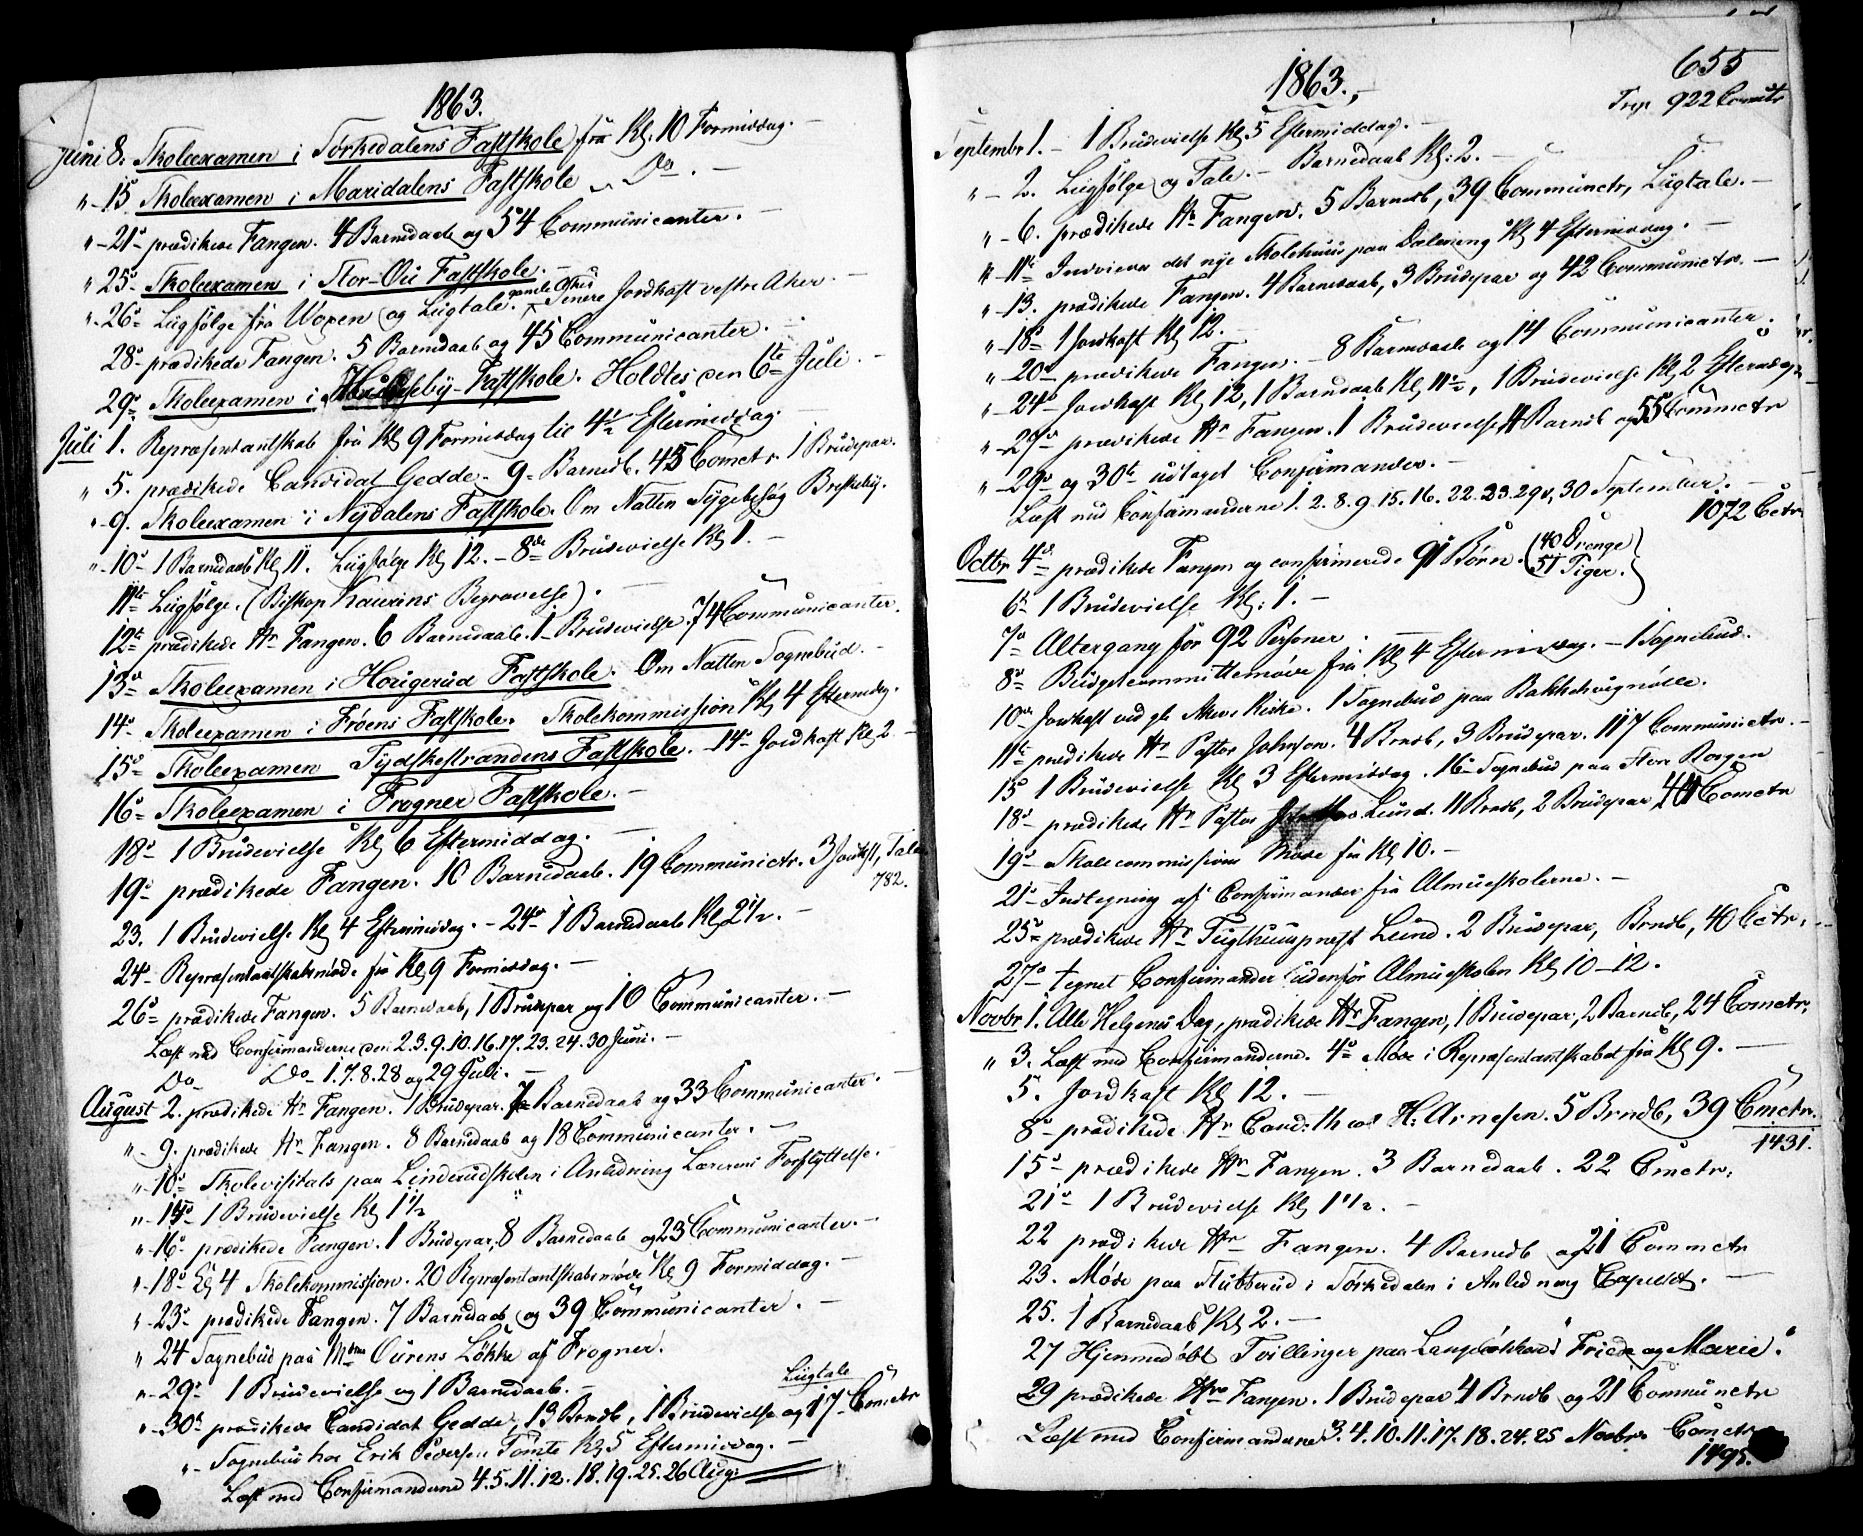 1863.
Juni 8. Skoleexamen i Sørkedalens Fastskole fra Kl. 10 Formiddag. –
" - 15 Skoleexamen i Maridalens Fastskole – Do. –
" - 21de prædikede Fangen. 4 Barnedaab og 54 Communicanter. –
" 25de Skoleexamen i Stor-Øen Fastskole. –
" - 26de Liigfølge fra Woxen og Liigtale. Senere Jordkast vestre Aker. –
28de prædikede Fangen. 5 Barnedaab og 45 Communicanter. –
29de Skoleexamen i Huseby-Fastskole. Holdtes den 6te Juli. –
Juli 1. Repræsentantskab fra Kl 9 Formiddag til 4½ Eftermiddag.
" 5. prædikede Candidat Gedde. 9 Barnedb. 45 Comctr. 1 Brudepar.
" - 9. Skoleexamen i Nydalens Fastskole. Om Natten Sygebesøg Brekkeby.
" - 10de 1 Barnedaab Kl 11. Liigfølge Kl 12. – 8de Brudevielse Kl 1. –
11te Liigfølge. (Biskop Kaurins Begravelse). –
12te prædikede Hr Fangen. 6 Barnedaab. 1 Brudevielse. 74 Communicanter.
13de Skoleexamen i Hougerud Fastskole. Om Natten Sognebud. –
14de Skoleexamen i Frøens Fastskole. Skolekommission Kl 4 Eftermdg.
15de Skoleexamen Tydskestrandens Fastskole. – 14de Jordkast Kl 2. –
16de Skoleexamen i Frogner Fastskole. –
18de 1 Brudevielse Kl 6 Eftermiddag. –
19de prædikede Fangen. 10 Barnedaab. 19 Communictr. 3 Jordkst, Tale
782.
23. 1 Brudevielse Kl 4 Eftermiddag. – 24de 1 Barnedaab Kl 2½. –
24de Repræsentantskabsmøde fra Kl 9 Formiddag. –
26de prædikede Fangen. 5 Barnedaab, 1 Brudepar og 10 Communicanter. –
Læst med Confirmanderne den 2.3.9.10.16.17.23.24.30 Juni. –
Do Do 1.7.8.28 og 29 Juli. –
August 2. prædikede Hr Fangen. 1 Brudepar. 7 Barnedaab og 33 Communicanter. –
" - 9. prædikede Hr Fangen. 8 Barnedaab og 18 Communicanter. –
" - 10de Skolevisitats paa Linderudskolen i Anledning Lærerens Forflyttelse. –
" - 1 Brudevielse Kl 1½
" - 16de prædikede Fangen. 1 Brudepar, 8 Barnedaab og 23 Communicanter. –
" - 18de Kl 4 Skolekommission. 20 Repræsentantskabsmøde Kl 9 Formiddag. –
" - 23de prædikede Fangen. 7 Barnedaab og 39 Communicanter. –
" 24 Sognebud paa Ourens Løkke af Frogner.
" - 29de 1 Brudevielse og 1 Barnedaab. –
Liigtale
" - 30de prædikede Candidat Gedde, 13 Brndb, 1 Brudevielse og 17 Cmctr
" - Sognebud hos Erik Pedersen Tømte Kl 5 Eftermiddag. –
Læst med Confirmanderne 4.5.11.12.18.19.25.26 Aug:
1863.
655
Trsp. 922 Comctr
Septembr 1. – 1 Brudevielse Kl 5 Eftermiddag. –
" - 2. Liigfølge og Tale. – Barnedaab Kl: 2. –
" - 6. prædikede Hr Fangen. 5 Barnedb, 39 Communctr, Liigtale. –
" - 11te Indviedes det nye Skolehuus paa Kl 4 Eftermiddag. –
" - 13. prædikede Fangen. 4 Barnedaab, 3 Brudepar og 42 Communictr. –
" - 18de 1 Jordkast Kl 12. –
" - 20de prædikede Fangen. – 8 Barnedaab og 14 Communicanter.
" - 24de Jordkast Kl 12, 1 Barnedaab Kl 11½, 1 Brudevielse Kl 2 Eftermdg
" - 27de prædikede Hr Fangen. 1 Brudevielse 4 Barndb og 55 Commctr
" - 29de og 30te udtaget Confirmander. –
Læst med Confirmanderne 1.2.8.9.15.16.22.23.29de, 30 September. –
1072 Cctr
Octbr 4de prædikede Fangen og confirmerede 91 Børn. (40 Drenge
51 Piger.)
6te 1 Brudevielse Kl: 1. –
7de Altergang for 92 Personer. –
8de Budgetcommittemøde fra Kl 4 Eftermiddag. – 1 Sognebud.
10de Jordkast ved gl. Akers Kirke. 1 Sognebud paa Bakkehugnølle.
11te prædikede Hr Pastor Johnson. 4 Brndb, 3 Brudepar. 117 Communictr. –
15de 1 Brudevielse Kl 3 Eftermiddag. 16de Sognebud paa Store Rosgen
18de prædikede Hr Pastor Lund. 11 Brndb, 2 Brudepar 41 Comctr
19de Skolecommissions Møde fra Kl 10. –
21de Indtegning af Confirmander fra Almueskolerne. –
25de prædikede Hr Tugthuuspræst Lund. 2 Brudepar, Brndb, 40 Cctr. –
27de tegnet Confirmander udenfor Almueskolen Kl 10–12.
Novbr 1. Alle Helgens Dag, prædikede Hr Fangen, 1 Brudepar, 2 Barndb, 24 Comctr,
" 3. Læst med Confirmanderne. 4de Møde i Repræsentantskabet fra Kl 9. –
5. Jordkast Kl 12. –
8de prædikede Hr Cand: theol H. Arnesen. 5 Brndb, 39 Cmctr.
1431.
15de prædikede Hr Fangen. 3 Barnedaab. 22 Cmctr.
21de 1 Brudevielse Kl 1½. –
22 prædikede Hr Fangen. 4 Barnedb og 21 Commctr
23. Møde paa Stubberud i Sørkedalen i Anledning Capellet. –
25. 1 Barnedaab Kl 2. –
27 Hjemmedøbt Tvillinger paa "Frida og Marie".
29 prædikede Hr Fangen. 1 Brudepar 4 Brndb og 21 Communctr
Læst med Confirmanderne 3.4.10.11.17.18.24.25 Novbr Comctr
1495.